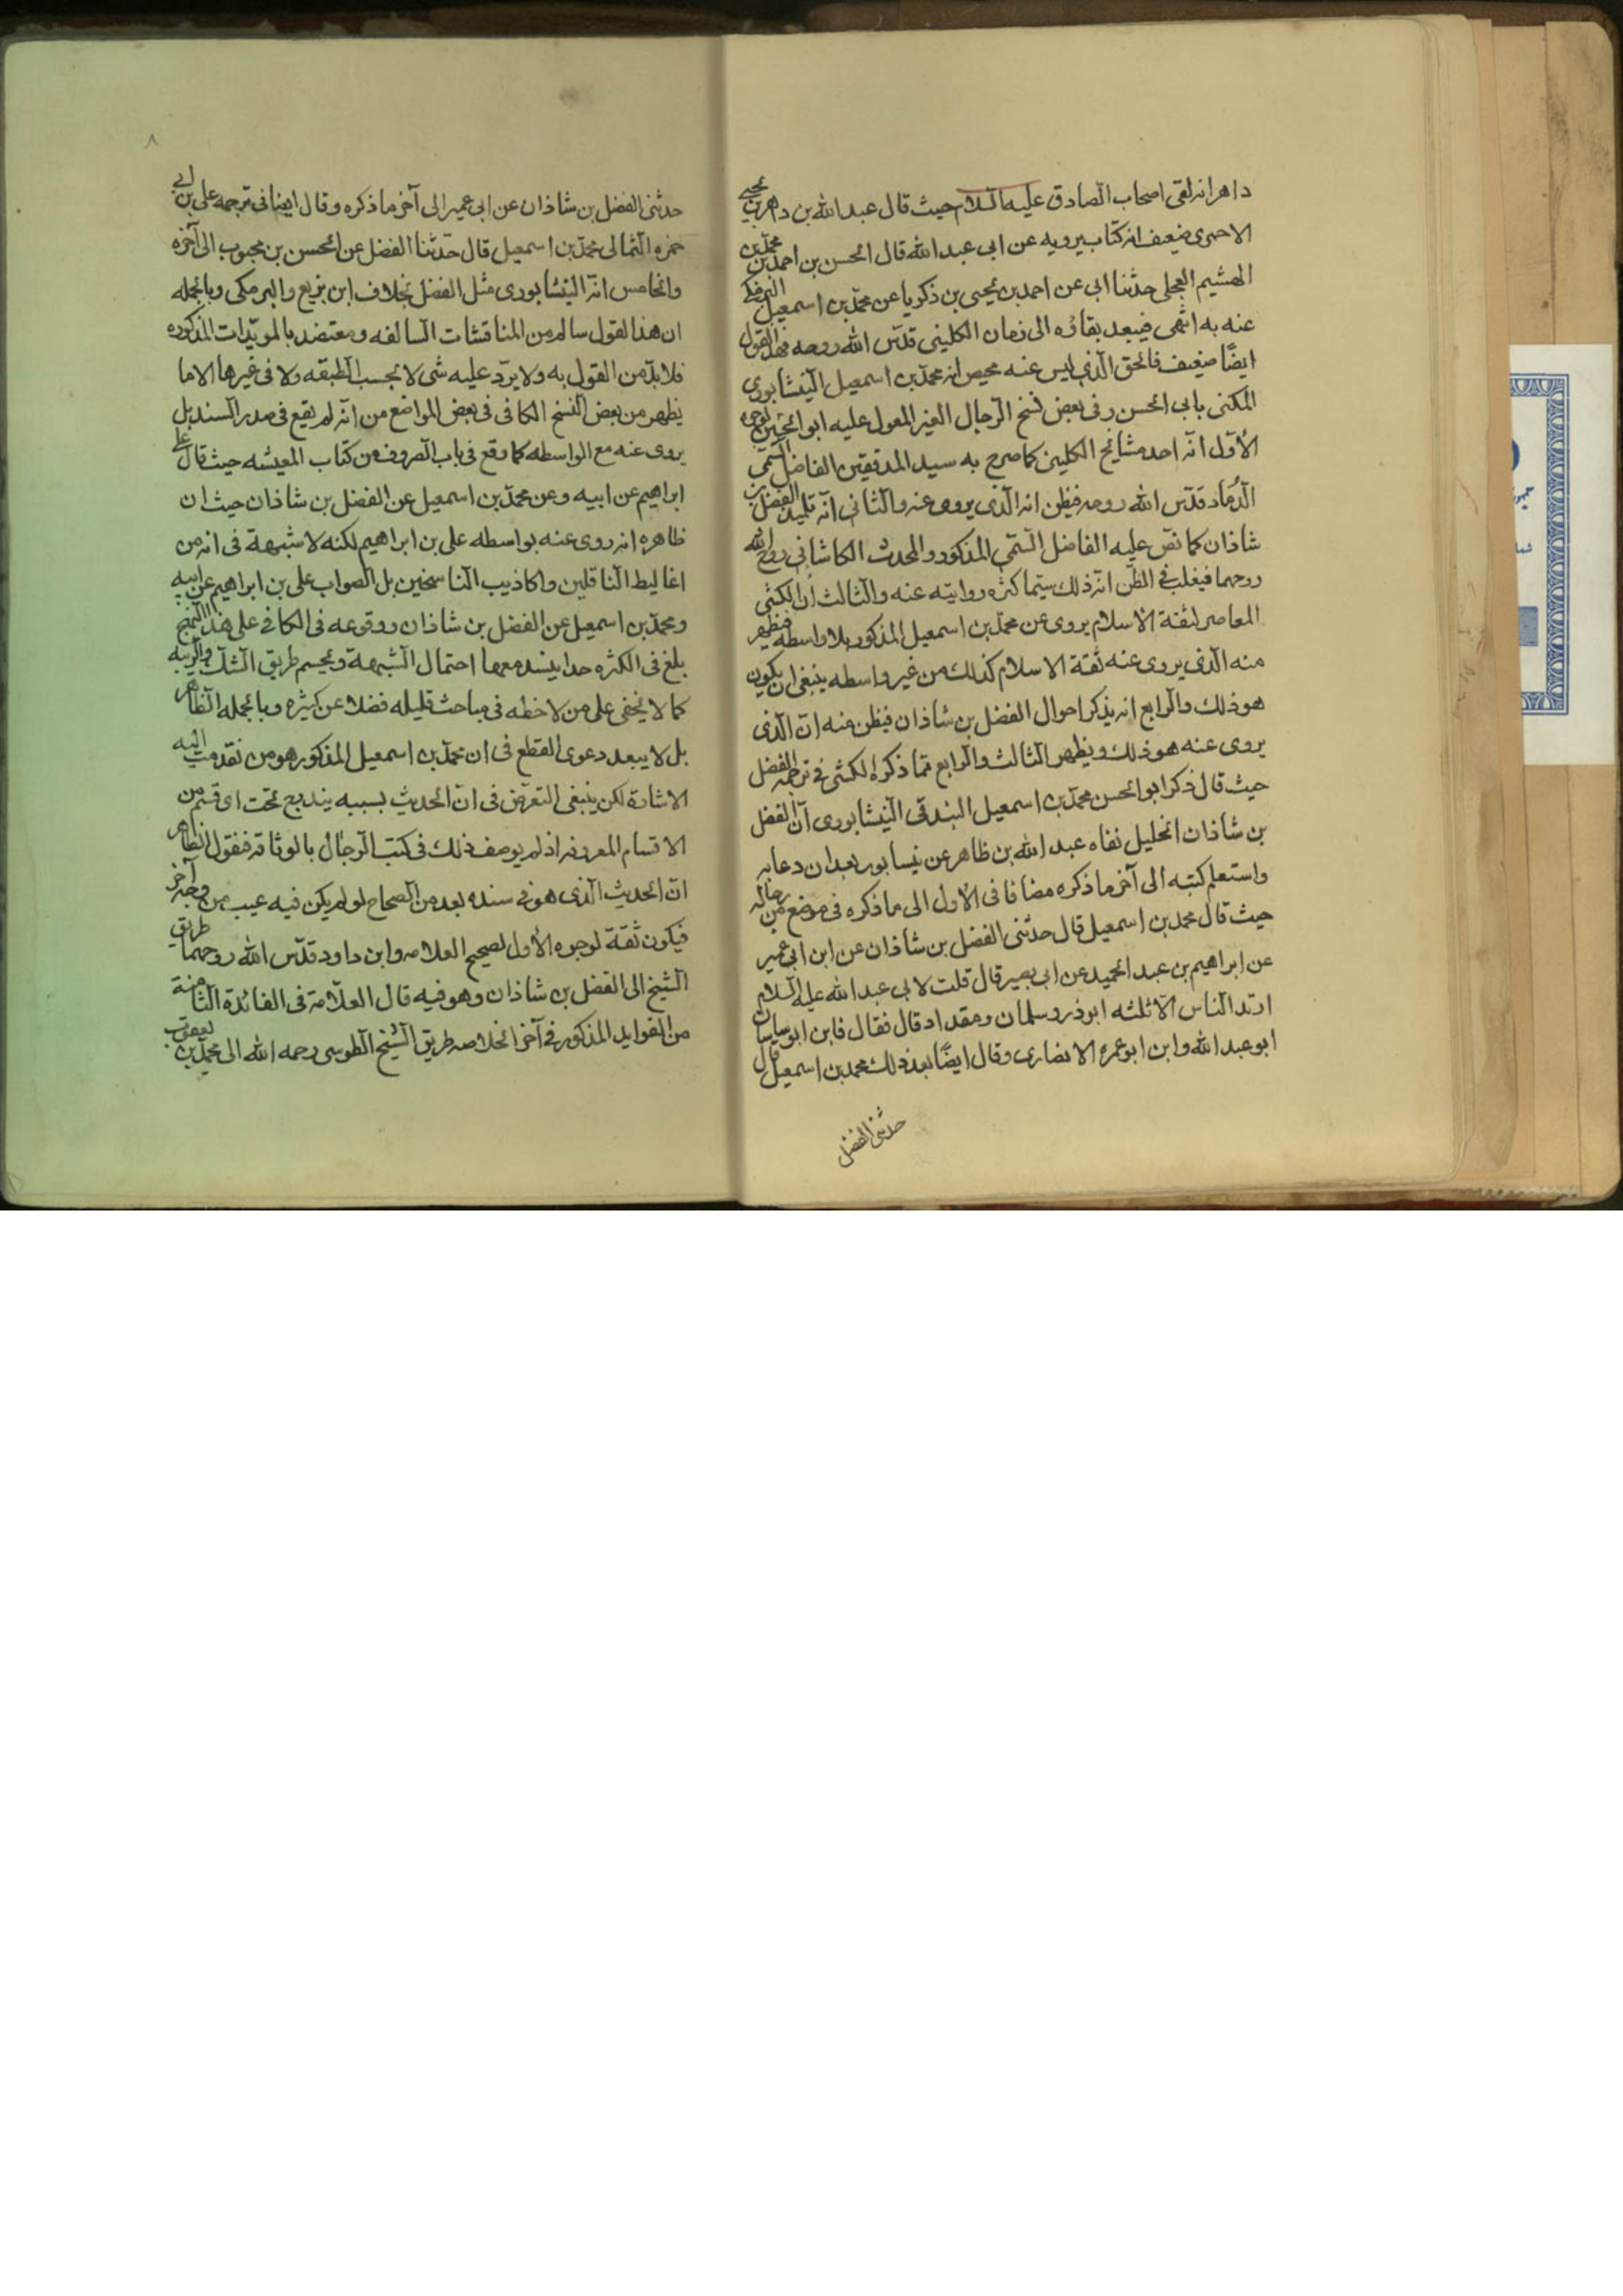 داهر انه لقى اصحاب الصادق عليه السلام حيث قال عبد الله بن داهر بن يحيى
الاحمرى ضعيف له كتاب يرويه عن ابى عبد الله قال الحسن بن احمد بن محمد بن
الهشيم العجلى حدثنا ابى عن احمد بن يحيى بن ذكريا عن محمد بن اسمعيل البرمكى
عنه به انتهى فيبعد بقاؤه الى زمان الكلينى قدس الله روحه فهذا القول
ايضًا ضعيف فالحق الذى ليس عنه محيص انه محمد بن اسمعيل النيشابورى
المكنى بابى الحسن وفى بعض نسخ الرجال الغير المعول عليه ابو الحسين لوجوه
الأول انه احد مشايخ الكلينى كما صرح به سيد المدققين الفاضل السمى
الدماد قدس الله روحه فيظن انه الذى يروى عنه والثانى انه تلميذ الفضل بن
شاذان كما نص عليه الفاضل السمى المذكور والمحدث الكاشانى روح الله
روحهما فيغلب فى الظن انه ذلك سيما كثره روايته عنه والثالث ان الكشى
المعاصر لثقة الاسلام يروى عن محمد بن اسمعيل المذكور بلا واسطه فيظهر
منه الذى يروى عنه ثقة الاسلام كذلك من غير واسطه ينبغى ان يكون
هو ذلك والرابع انه يذكر احوال الفضل بن شاذان فيظن عنه ان الذى
يروى عنه هو ذلك ويظهر الثالث والرابع مما ذكره الكشى فى ترجمه الفضل
حيث قال ذكر ابو الحسن محمد بن اسمعيل البندقى النيشابورى ان الفضل
بن شاذان الخليل نفاه عبد الله بن ظاهر عن نيسابور بعد ان دعا به
واستعلم كتبه الى آخر ما ذكره مضافا فى الأول الى ما ذكره فى موضع من رجاله
حيث قال محمد بن اسمعيل قال حدثنى الفضل بن شاذان عن ابن ابى عمير
عن ابراهيم بن عبد الحميد عن ابى بصير قال قلت لابى عبد الله عليه السلام
ارتد الناس الا ثلثه ابوذر وسلمان ومقداد قال فقال فاين ابو ساسان
ابو عبد الله وابن ابو عمره الانصارى وقال ايضًا بعد ذلك محمد بن اسمعيل قال
حدثنى الفضل
٨
حدثنى الفضل بن شاذان عن ابى عمير الى آخر ما ذكره وقال ايضا فى ترجمه على بن ابى
حمزه الثمالى محمد بن اسمعيل قال حدثنا الفضل عن الحسن بن محبوب الى آخره
والخامس انه النيشابورى مثل الفضل بخلاف ابن بزيع والبرمكى وبالجمله
ان هذا القول سالم من المناقشات السالفه ومعتضد بالمويدات المذكوره
فلا بد من القول به ولا يرد عليه شى لا بحسب الطبقه ولا فى غيرها الا ما
يظهر من بعض النسخ الكافى فى بعض المواضع من انه لم يقع فى صدر السند بل
يروى عنه مع الواسطه كما وقع فى باب الصروف من كتاب المعيشه حيث قال على
ابراهيم عن ابيه وعن محمد بن اسمعيل عن الفضل بن شاذان حيث ان
ظاهره انه روى عنه بواسطه على بن ابراهيم لكنه لا شبهة فى انه من
اغاليط الناقلين واكاذيب الناسخين بل الصواب على بن ابراهيم عن ابيه
ومحمد بن اسمعيل عن الفضل بن شاذان ووقوعه فى الكافى على هذا النهج
بلغ فى الكثره حدا ينسد معها احتمال الشبهة ويحسم طريق الشك والريبه
كما لا يخفى على من لاخطه فى مباحث قليله فضلا عن كثيره وبالجمله الظاهر
بل لا يبعد دعوى القطع فى ان محمد بن اسمعيل المذكور هو من تقدمت اليه
الاشارة لكن ينبغى التعرض فى ان الحديث بسببه يندرج تحت اى قسم من
الاقسام المعروفه اذ لم يوصف ذلك فى كتب الرجال بالوثاقه فنقول الظاهر
ان الحديث الذى هو فى سنده يعد من الصحاح لو لم يكن فيه عيب من وجه آخر
فيكون ثقة لوجوه الأول لصحيح العلامه وابن داود قدس الله روحهما طريق
الشيخ الى الفضل بن شاذان وهو فيه قال العلامة فى الفائدة الثامنة
من الفوايد المذكور فى آخر الخلاصه طريق الشيخ الطوسى رحمه الله الى محمد بن يعقوب